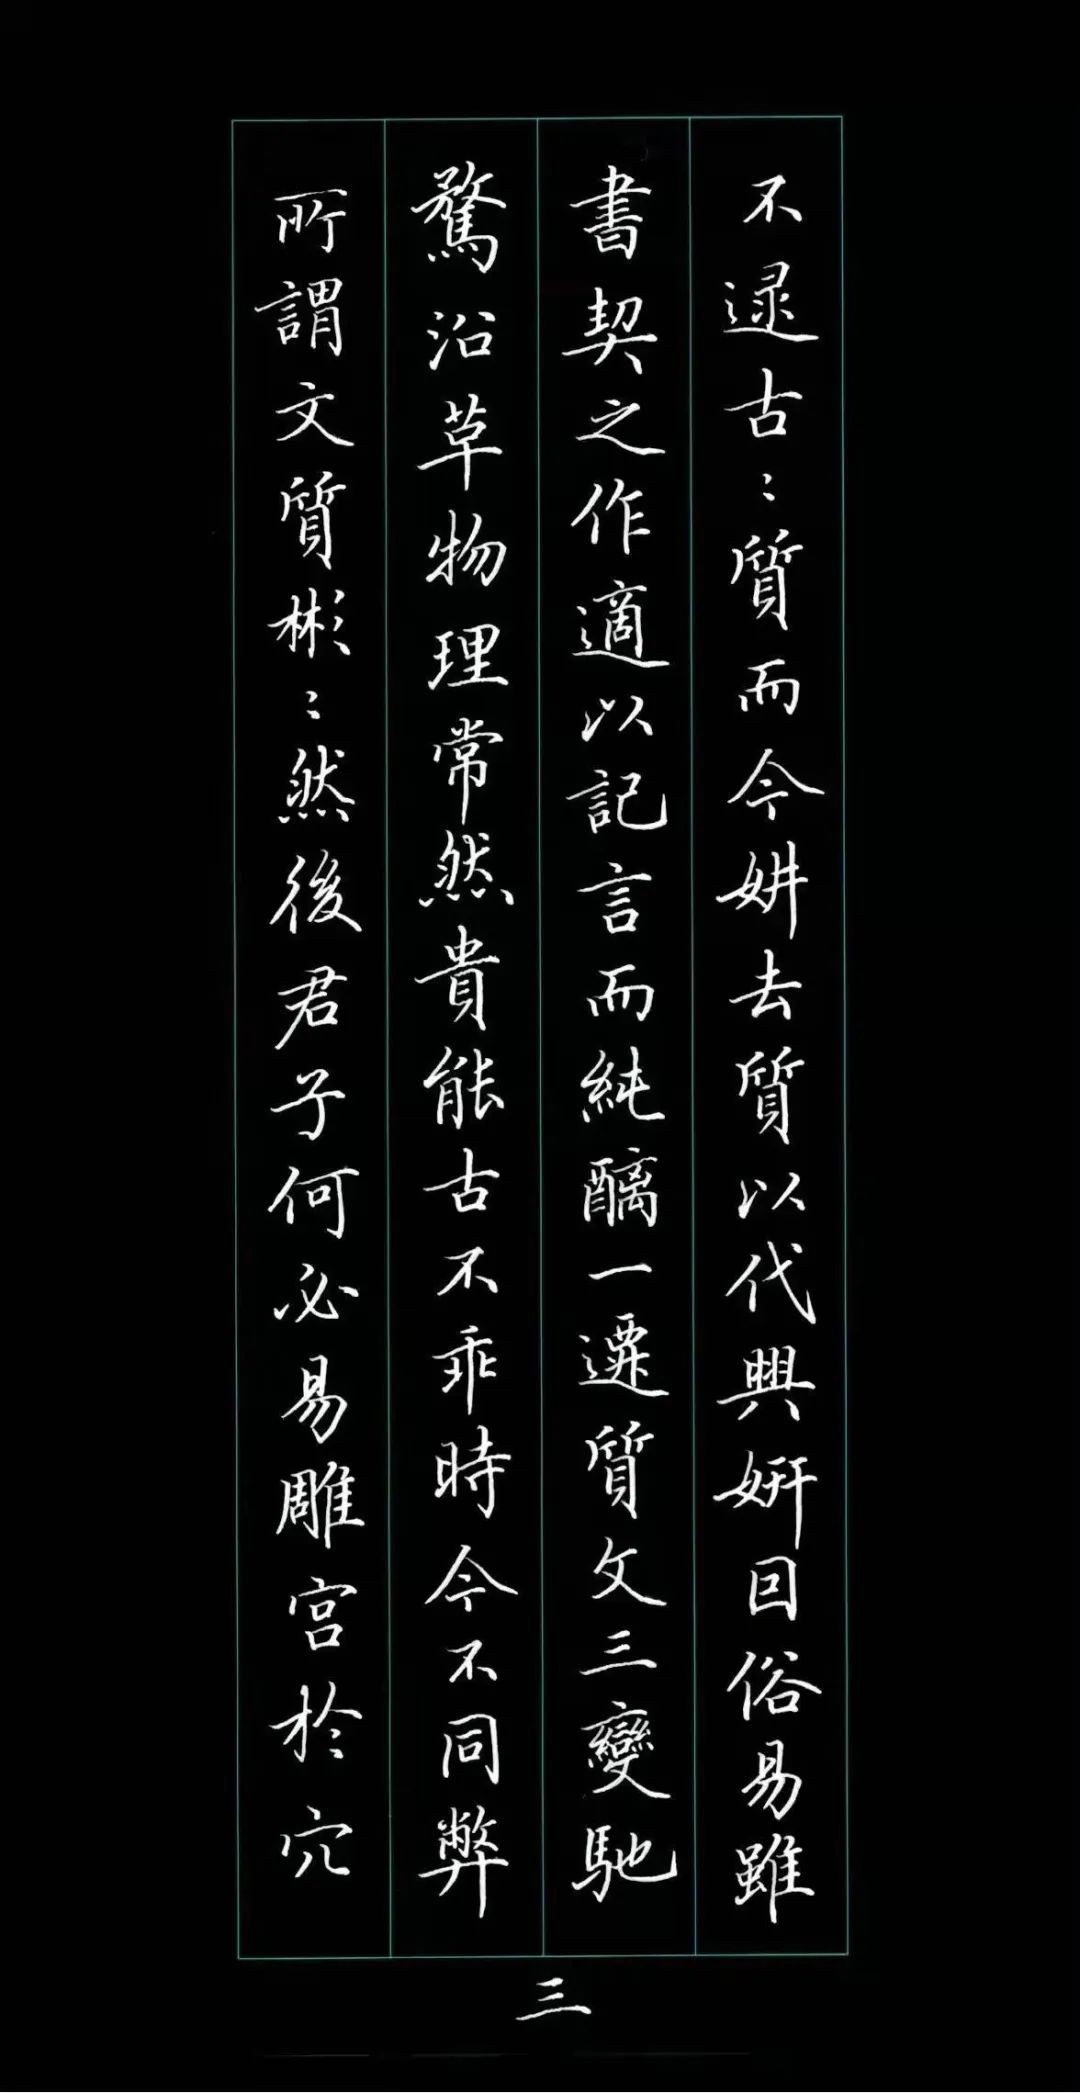 不逮古〻質而今姸去質以代興妍回俗易雖
書契之作適以記言而純醨一遷質文三變馳
騖沿草物理常然貴能古不乖時今不同弊
所謂文質彬〻然後君子何必易雕宮於穴
三